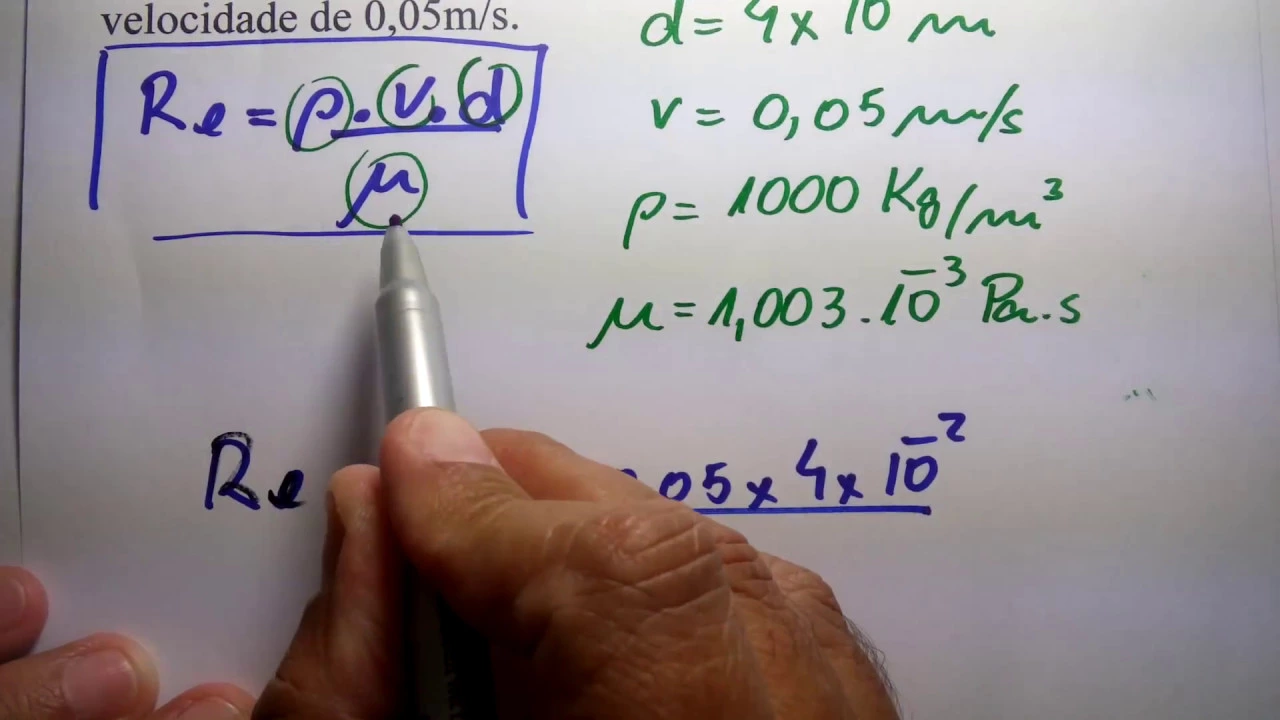 velocidade de 0,05m/s.
d = 4 x 10 m
Re = ρ . v . d
μ
v = 0,05 m/s
ρ = 1000 Kg/m³
μ = 1,003 . 10⁻³ Pa.s
Re 05 x 4 x 10⁻²